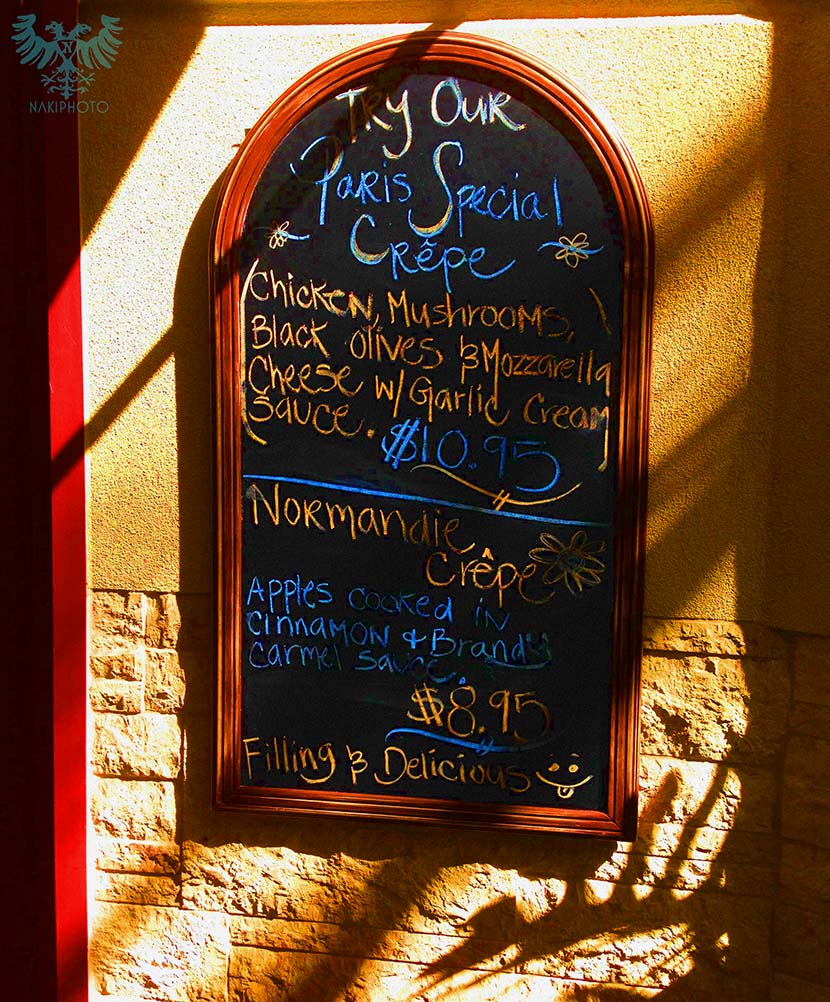 N
NAKIPHOTO
Try Our
Paris Special
Crêpe
Chicken, Mushrooms,
Black olives & Mozzarella
Cheese w/ Garlic Cream
Sauce. $10.95
Normandie
Crêpe
Apples cooked in
cinnamon & Brandy
Carmel Sauce.
$8.95
Filling & Delicious